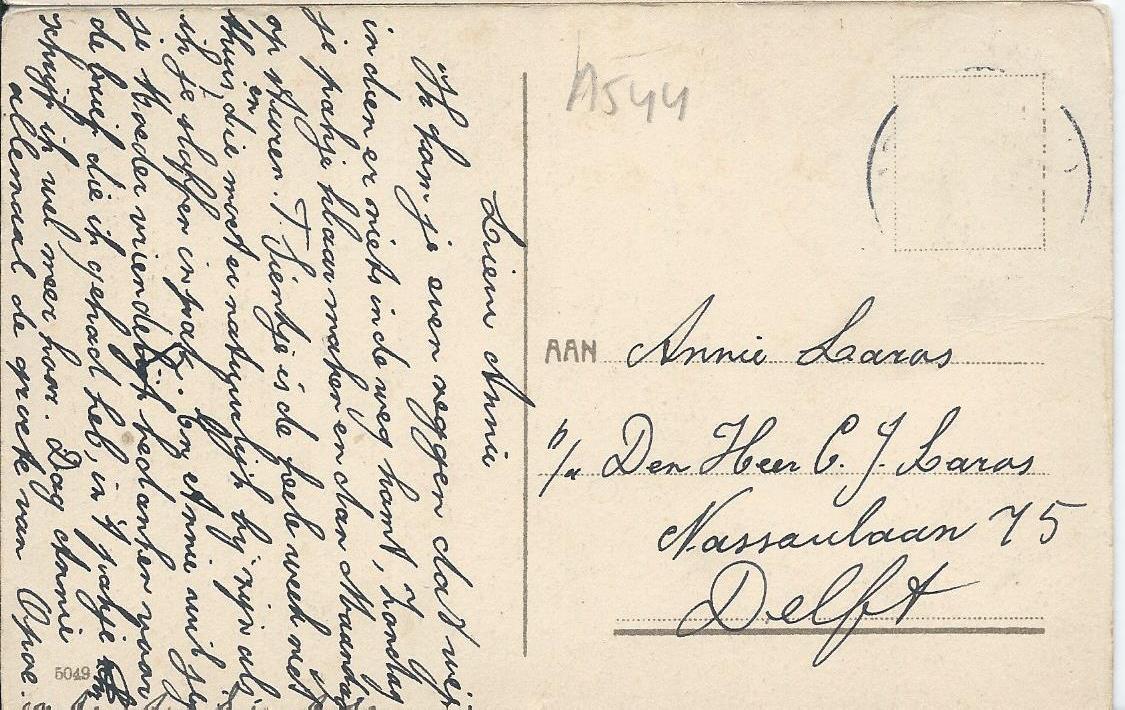 Lieve Annie
Ik kan je even zeggen dat wij
indien er niets in de weg komt, Zondag
je pakje klaar maken en dan Maandag
op sturen. T Sientje is de heele week met
thuis, en die moet er natuurlijk bij zijn als
ik je stoffen inpak. Annie wil jij
je Moeder vriendelijk bedanken voor
de brief die ik gehad heb, in 't pakje
schrijf ik wel meer hoor. Dag Annie
allemaal de groete van Opoe.
5049
A544
AAN Annie Laros
p/a Den Heer C. J. Laros
Nassaulaan 75
Delft